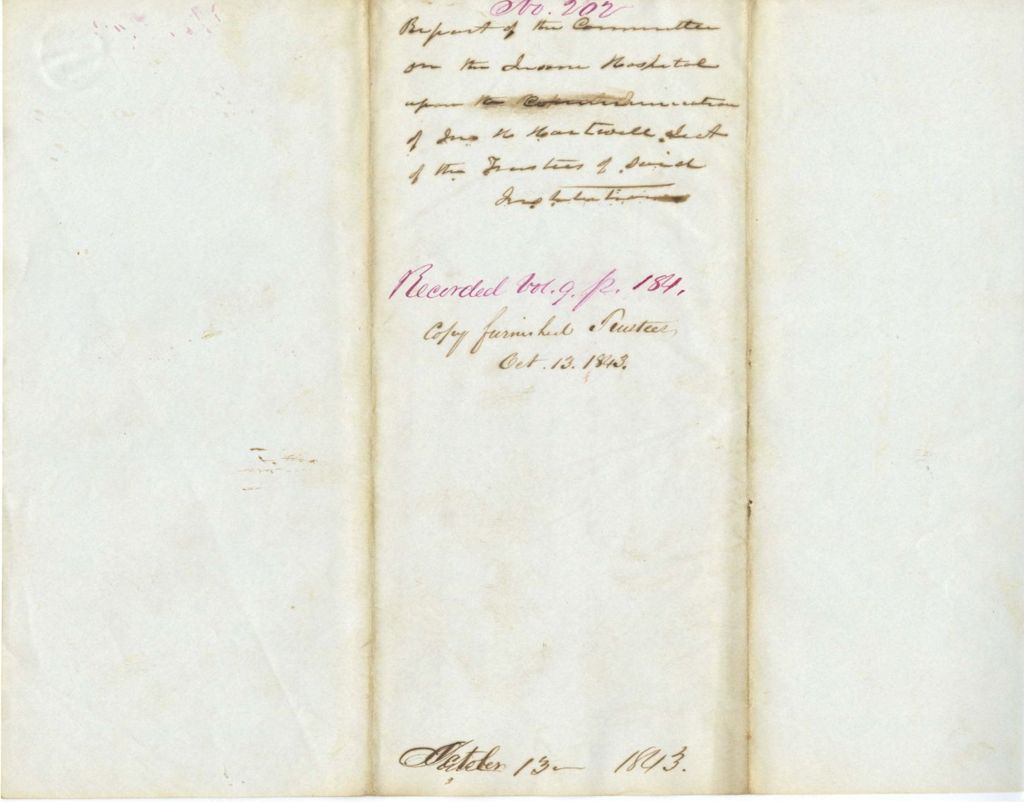 No. 202
Report of the Committee
on the Insane Hospital
upon the Communication
of Jno H Hartwell Sect
of the Trustees of Said
Institution
Recorded Vol. 9. p. 184.
Copy furnished Trustees
Oct. 13. 1843.
October 13 - 1843.